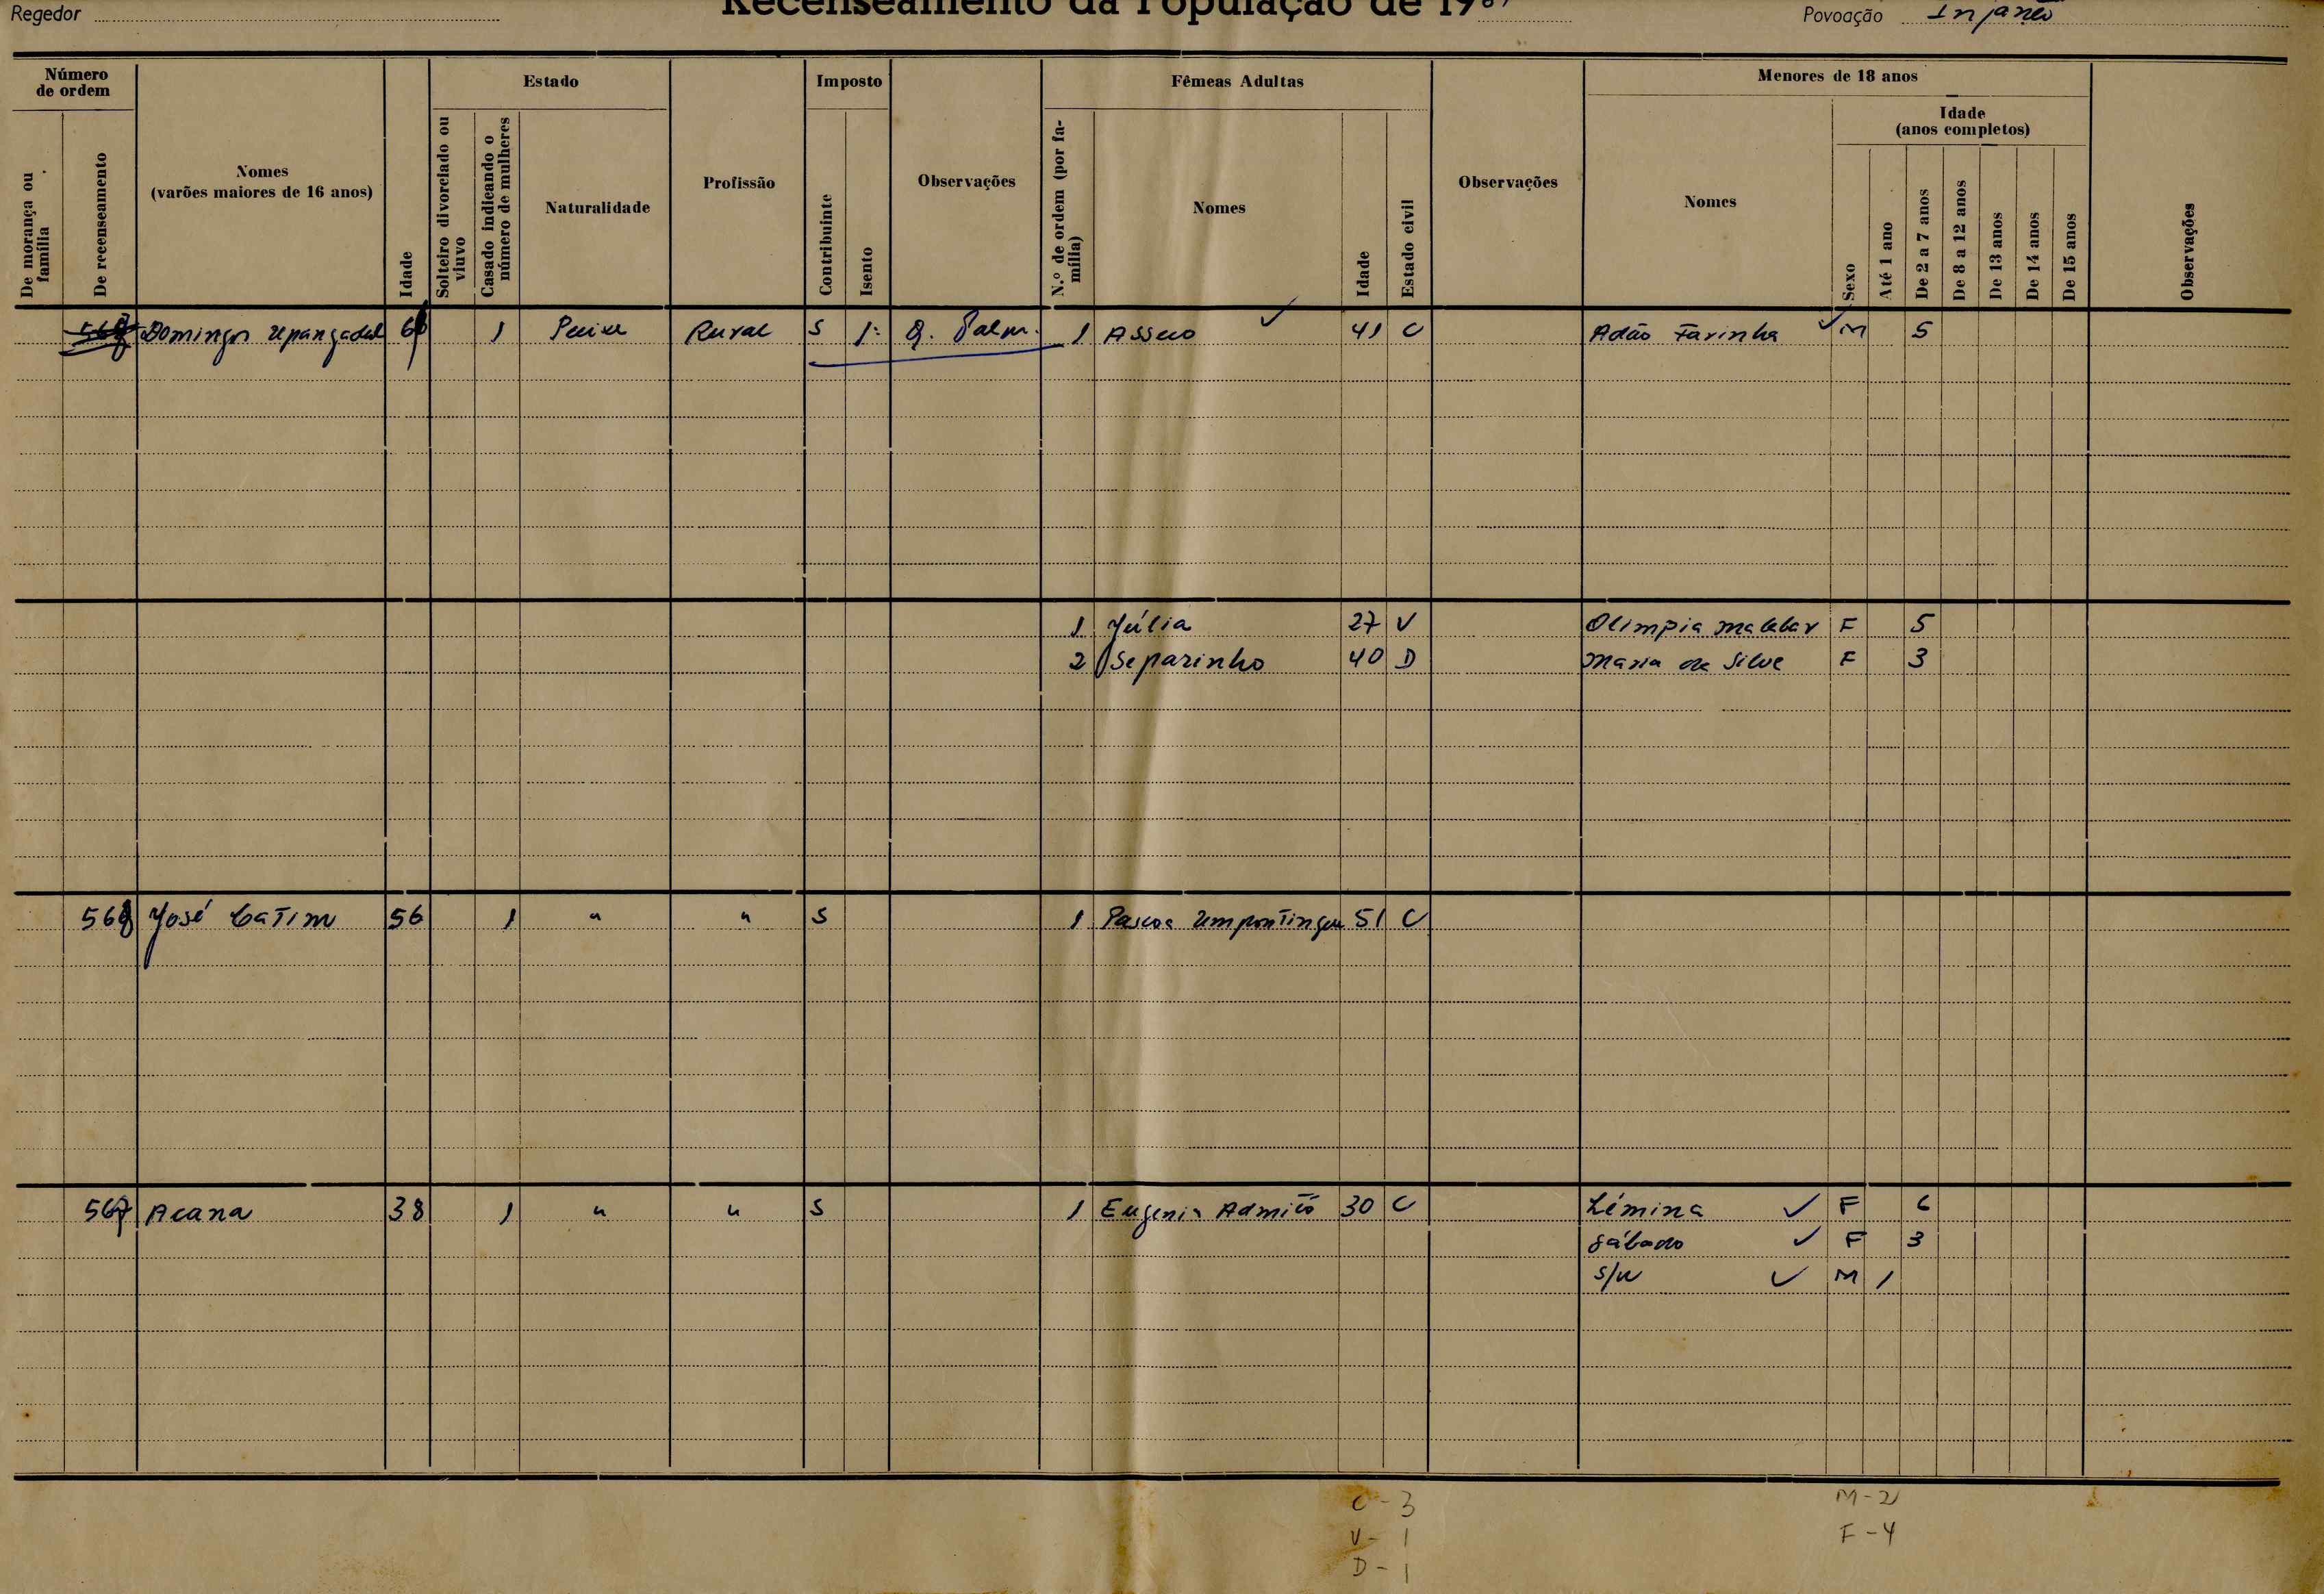 Regedor
Recenseamento da População de 19
Povoação
Número de ordem
Estado
Imposto
Fêmeas Adultas
Menores de 18 anos
Idade (anos completos)
De morança ou família
De recenseamento
Nomes (varões maiores de 16 anos)
Idade
Solteiro divorciado ou viuvo
Casado indicando o número de mulheres
Naturalidade
Profissão
Contribuinte
Isento
Observações
N.º de ordem (por família)
Nomes
Idade
Estado civil
Observações
Nomes
Sexo
Até 1 ano
De 2 a 7 anos
De 8 a 12 anos
De 13 anos
De 14 anos
De 15 anos
Observações
Domingos 1 Rural S 1 41 C Adão Farinha M 5
1 Júlia 27 V Olimpia F 5
2 Separinho 40 D Maria da Silva F 3
568 José Catim 56 1 " " S 1 Pascoa 51 C
567 Acana 38 1 " " S 1 Eugenia 30 C Lémina F 6
Sábado F 3
s/n M 1
C - 3
V - 1
D - 1
M - 2
F - 4